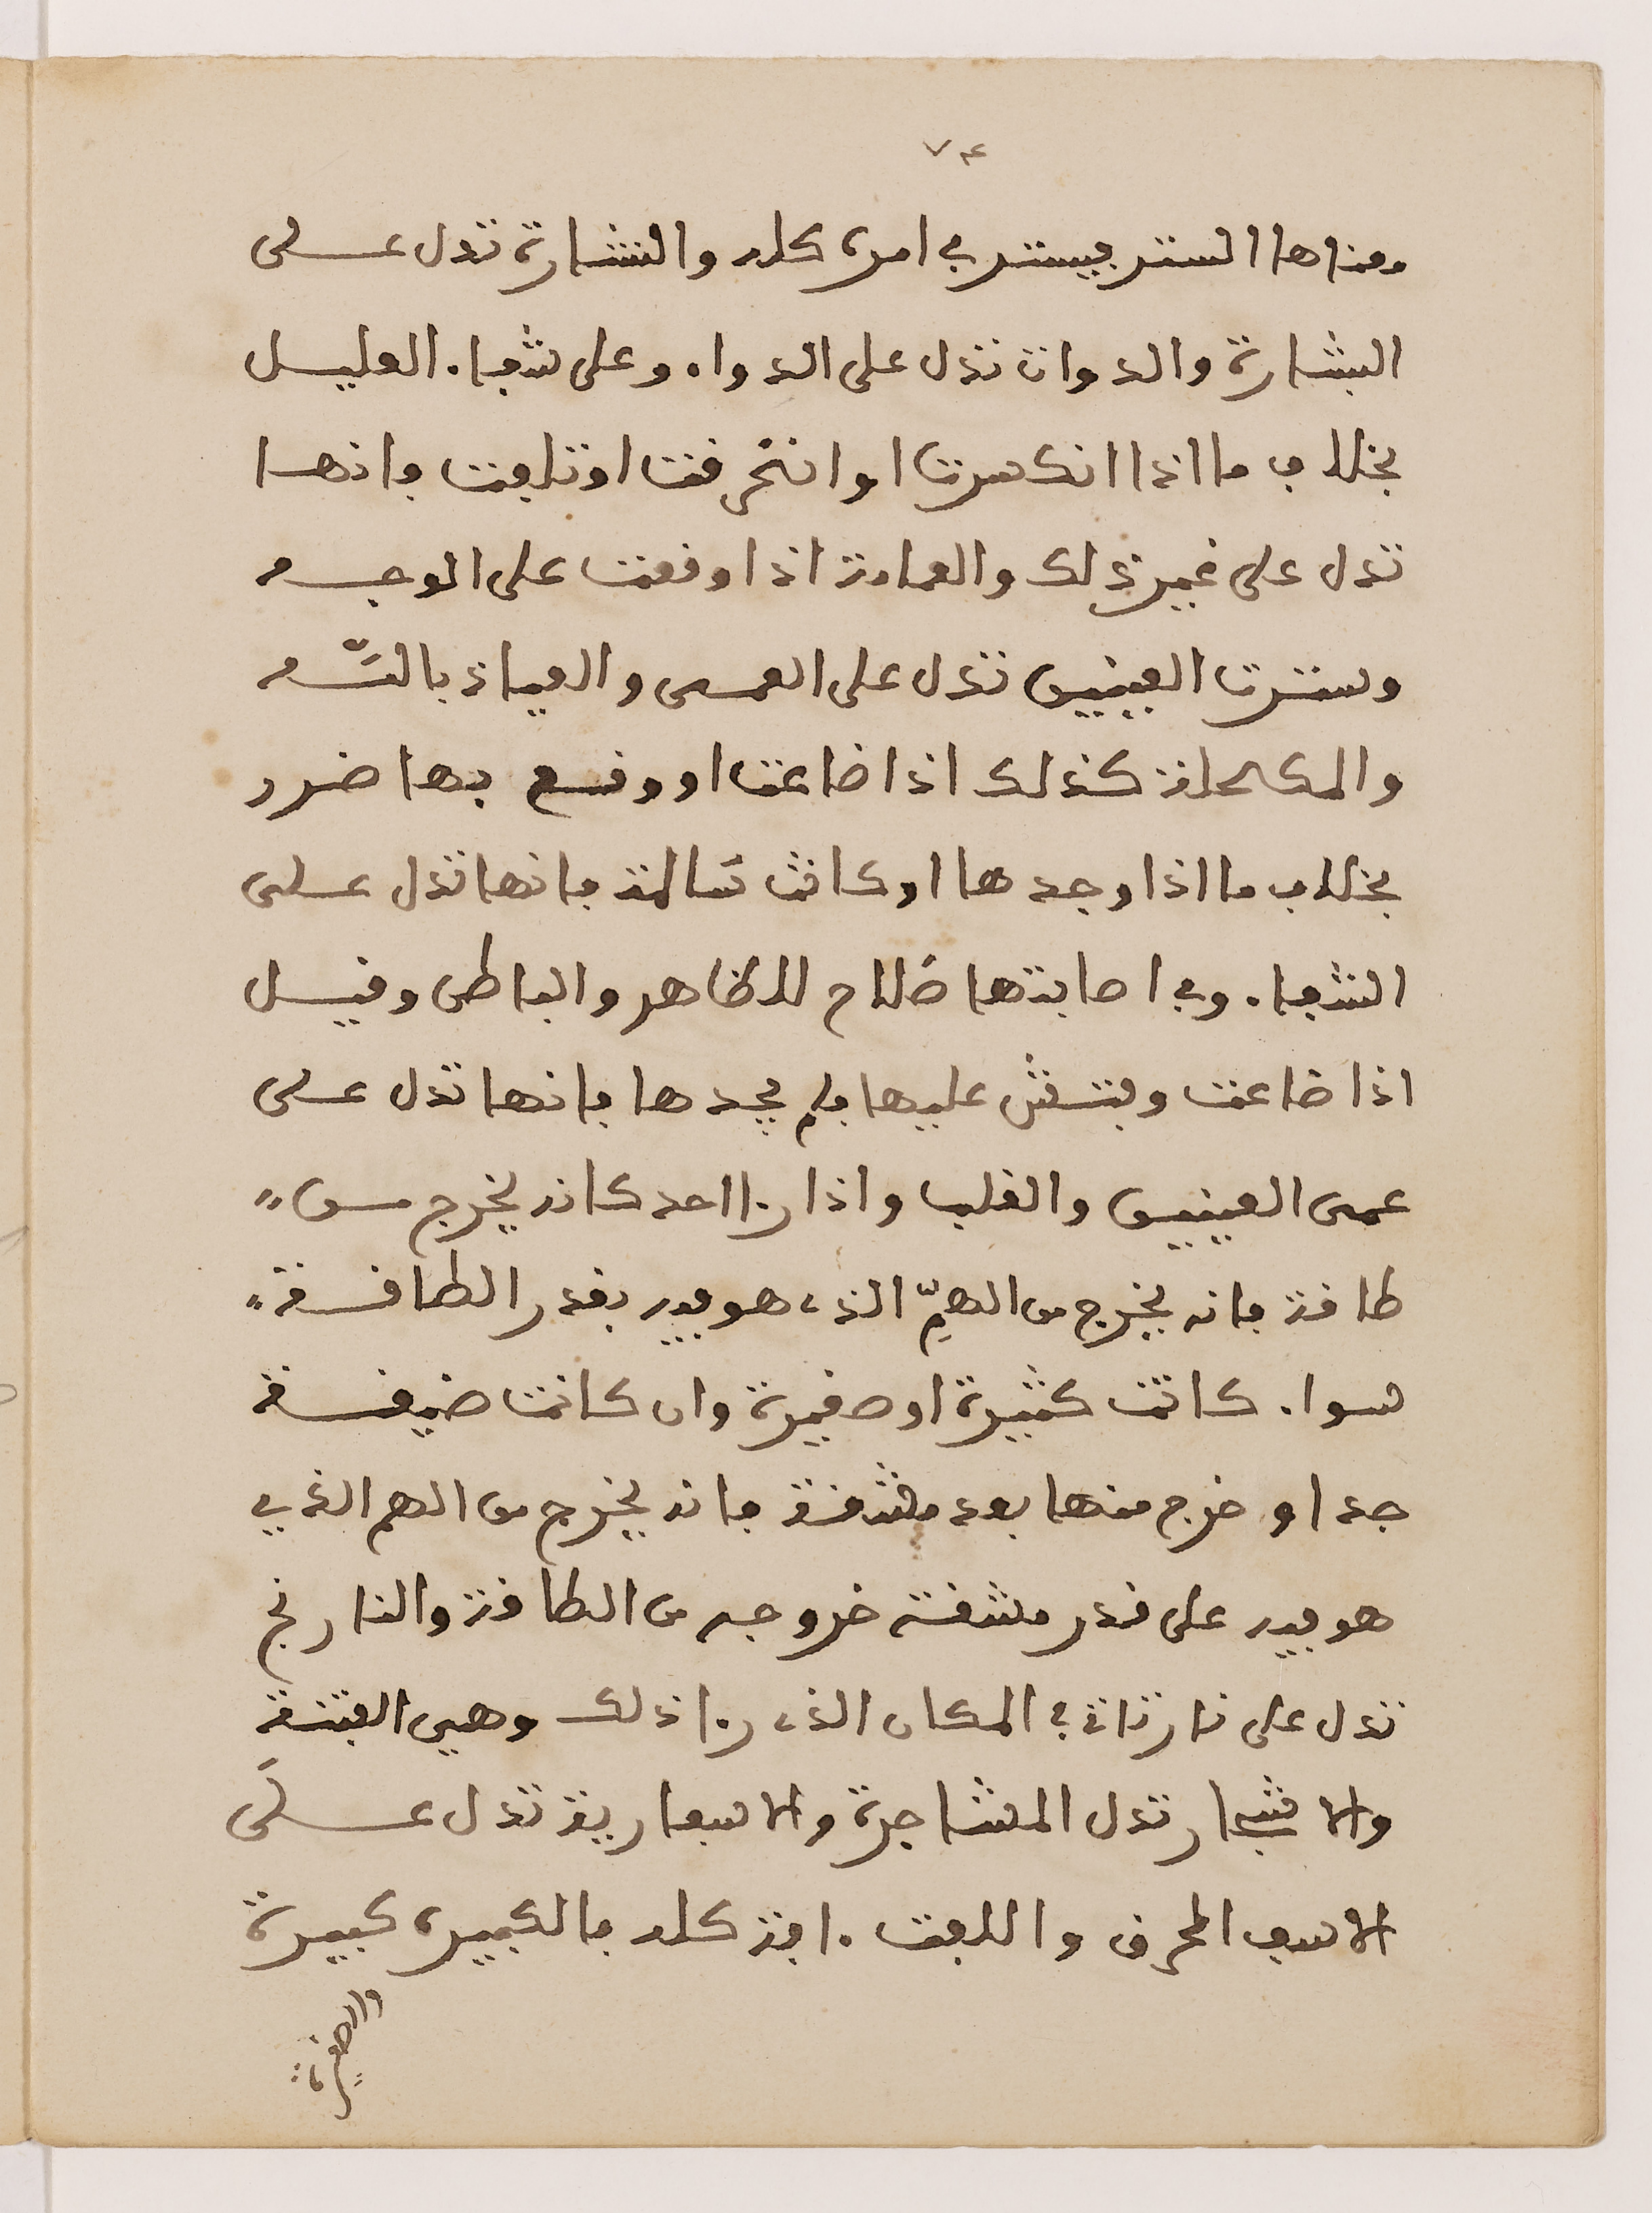 ٧٤
ومعناها الستر يستر في امره كله والنشارة تدل على
البشارة والدواة تدل على الدواء وعلى شفاء العليل
بخلاف ما اذا انكسرت او انحرقت او تلفت فانها
تدل على غير ذلك والعمامة اذا وقعت على الوجه
وسترت العينين تدل على العمى والعياذ بالله
والمكحلة كذلك اذا ضاعت او وقع بها ضرر
بخلاف ما اذا وجدها او كانت سالمة فانها تدل على
الشفاء وفي اصابتها صلاح للظاهر والباطن وقيل
اذا ضاعت وفتش عليها فلم يجدها فانها تدل على
عمى العينين والقلب واذا راا احد كانه يخرج من
طاقة فانه يخرج من الهمّ الذي هو فيه بقدر الطاقة
سواء كانت كبيرة او صغيرة وان كانت ضيقة
جدا وخرج منها بعد مشقة فانه يخرج من الهم الذي
هو فيه على قدر مشقة خروجه من الطاقة والنارنج
تدل على نار تاتي في المكان الذي راا ذلك وهي الفتنة
والاشجار تدل المشاجرة والاسفارية تدل على
الاسف المحرق واللفت افة كله فالكبيرة كبيرة
والصغيرة